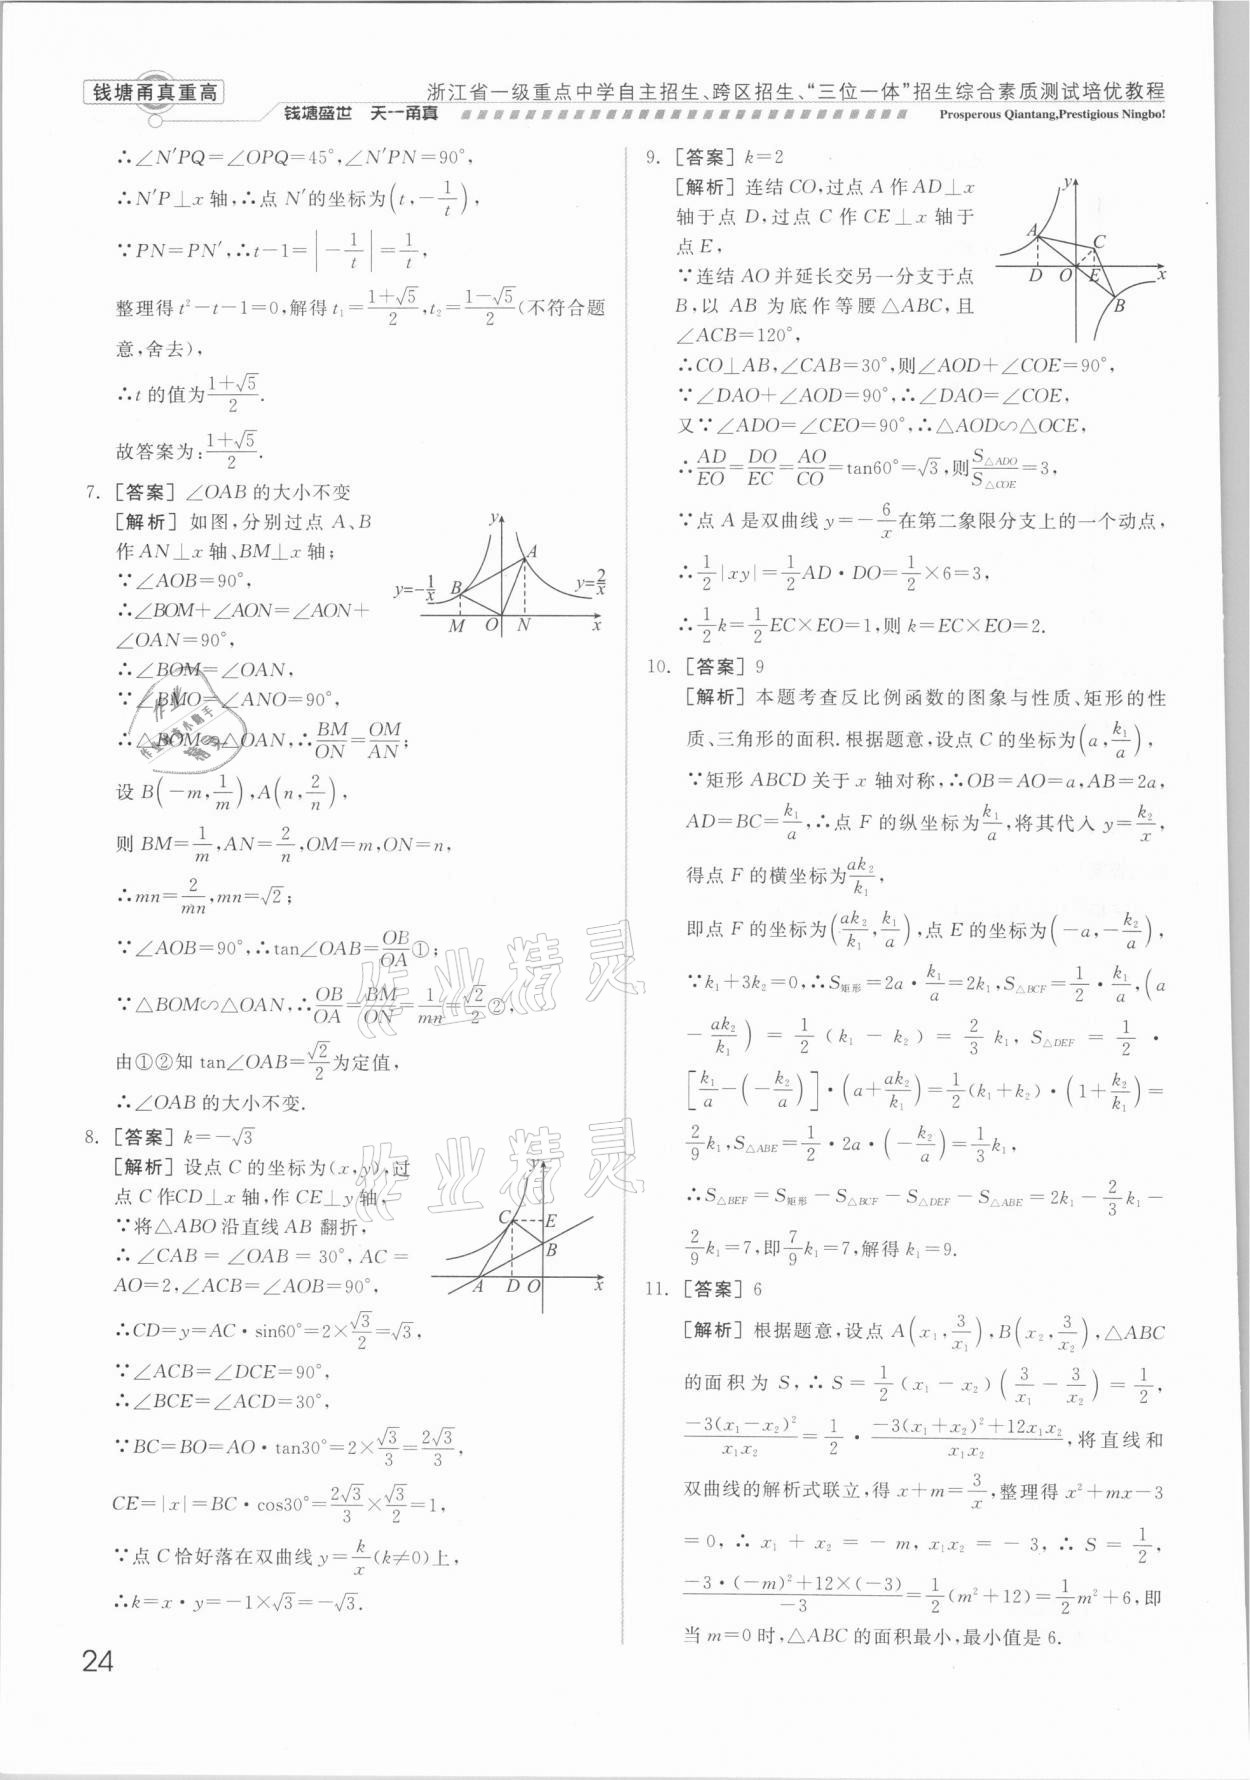 钱塘甬真重高
浙江省一级重点中学自主招生、跨区招生、“三位一体”招生综合素质测试培优教程
钱塘盛世 天一甬真
Prosperous Qiantang,Prestigious Ningbo!
∴∠N′PQ=∠OPQ=45°,∠N′PN=90°,
∴N′P⊥x轴,∴点N′的坐标为(t,-1/t),
∵PN=PN′,∴t-1=|-1/t|=1/t,
整理得t²-t-1=0,解得t₁=(1+√5)/2,t₂=(1-√5)/2(不符合题
意,舍去),
∴t的值为(1+√5)/2.
故答案为:(1+√5)/2.
7. [答案]∠OAB的大小不变
[解析]如图,分别过点A、B
作AN⊥x轴、BM⊥x轴;
∵∠AOB=90°,
∴∠BOM+∠AON=∠AON+
∠OAN=90°,
∴∠BOM=∠OAN,
∵∠BMO=∠ANO=90°,
∴△BOM∽△OAN,∴BM/ON=OM/AN;
设B(-m,1/m),A(n,2/n),
则BM=1/m,AN=2/n,OM=m,ON=n,
∴mn=2/mn,mn=√2;
∵∠AOB=90°,∴tan∠OAB=OB/OA①;
∵△BOM∽△OAN,∴OB/OA=BM/ON=1/mn=√2/2②,
由①②知tan∠OAB=√2/2为定值,
∴∠OAB的大小不变.
y
A
y=-1/x
B
y=2/x
M O N x
8. [答案]k=-√3
[解析]设点C的坐标为(x,y),过
点C作CD⊥x轴,作CE⊥y轴,
∵将△ABO沿直线AB翻折,
∴∠CAB=∠OAB=30°,AC=
AO=2,∠ACB=∠AOB=90°,
∴CD=y=AC·sin60°=2×√3/2=√3,
∵∠ACB=∠DCE=90°,
∴∠BCE=∠ACD=30°,
∵BC=BO=AO·tan30°=2×√3/3=2√3/3,
CE=|x|=BC·cos30°=2√3/3×√3/2=1,
∵点C恰好落在双曲线y=k/x(k≠0)上,
∴k=x·y=-1×√3=-√3.
y
C E
B
A D O x
24
9. [答案]k=2
[解析]连结CO,过点A作AD⊥x
轴于点D,过点C作CE⊥x轴于
点E,
∵连结AO并延长交另一分支于点
B,以AB为底作等腰△ABC,且
∠ACB=120°,
∴CO⊥AB,∠CAB=30°,则∠AOD+∠COE=90°,
∵∠DAO+∠AOD=90°,∴∠DAO=∠COE,
又∵∠ADO=∠CEO=90°,∴△AOD∽△OCE,
∴AD/EO=DO/EC=AO/CO=tan60°=√3,则S△ADO/S△COE=3,
∵点A是双曲线y=-6/x在第二象限分支上的一个动点,
∴1/2|xy|=1/2AD·DO=1/2×6=3,
∴1/2k=1/2EC×EO=1,则k=EC×EO=2.
y
A
C
D O E x
B
10. [答案]9
[解析]本题考查反比例函数的图象与性质、矩形的性
质、三角形的面积.根据题意,设点C的坐标为(a,k₁/a),
∵矩形ABCD关于x轴对称,∴OB=AO=a,AB=2a,
AD=BC=k₁/a,∴点F的纵坐标为k₁/a,将其代入y=k₂/x,
得点F的横坐标为ak₂/k₁,
即点F的坐标为(ak₂/k₁,k₁/a),点E的坐标为(-a,-k₂/a),
∵k₁+3k₂=0,∴S矩形=2a·k₁/a=2k₁,S△BCF=1/2·k₁/a,(a
-ak₂/k₁)=1/2(k₁-k₂)=2/3k₁,S△DEF=1/2·
[k₁/a-(-k₂/a)]·(a+ak₂/k₁)=1/2(k₁+k₂)·(1+k₂/k₁)=
2/9k₁,S△ABE=1/2·2a·(-k₂/a)=1/3k₁,
∴S△BEF=S矩形-S△BCF-S△DEF-S△ABE=2k₁-2/3k₁-
2/9k₁=7,即7/9k₁=7,解得k₁=9.
11. [答案]6
[解析]根据题意,设点A(x₁,3/x₁),B(x₂,3/x₂),△ABC
的面积为S,∴S=1/2(x₁-x₂)(3/x₁-3/x₂)=1/2,
-3(x₁-x₂)²/x₁x₂=1/2·(-3(x₁+x₂)²+12x₁x₂)/x₁x₂,将直线和
双曲线的解析式联立,得x+m=3/x,整理得x²+mx-3
=0,∴x₁+x₂=-m,x₁x₂=-3,∴S=1/2,
(-3·(-m)²+12×(-3))/-3=1/2(m²+12)=1/2m²+6,即
当m=0时,△ABC的面积最小,最小值是6.
作业精灵
作业精灵